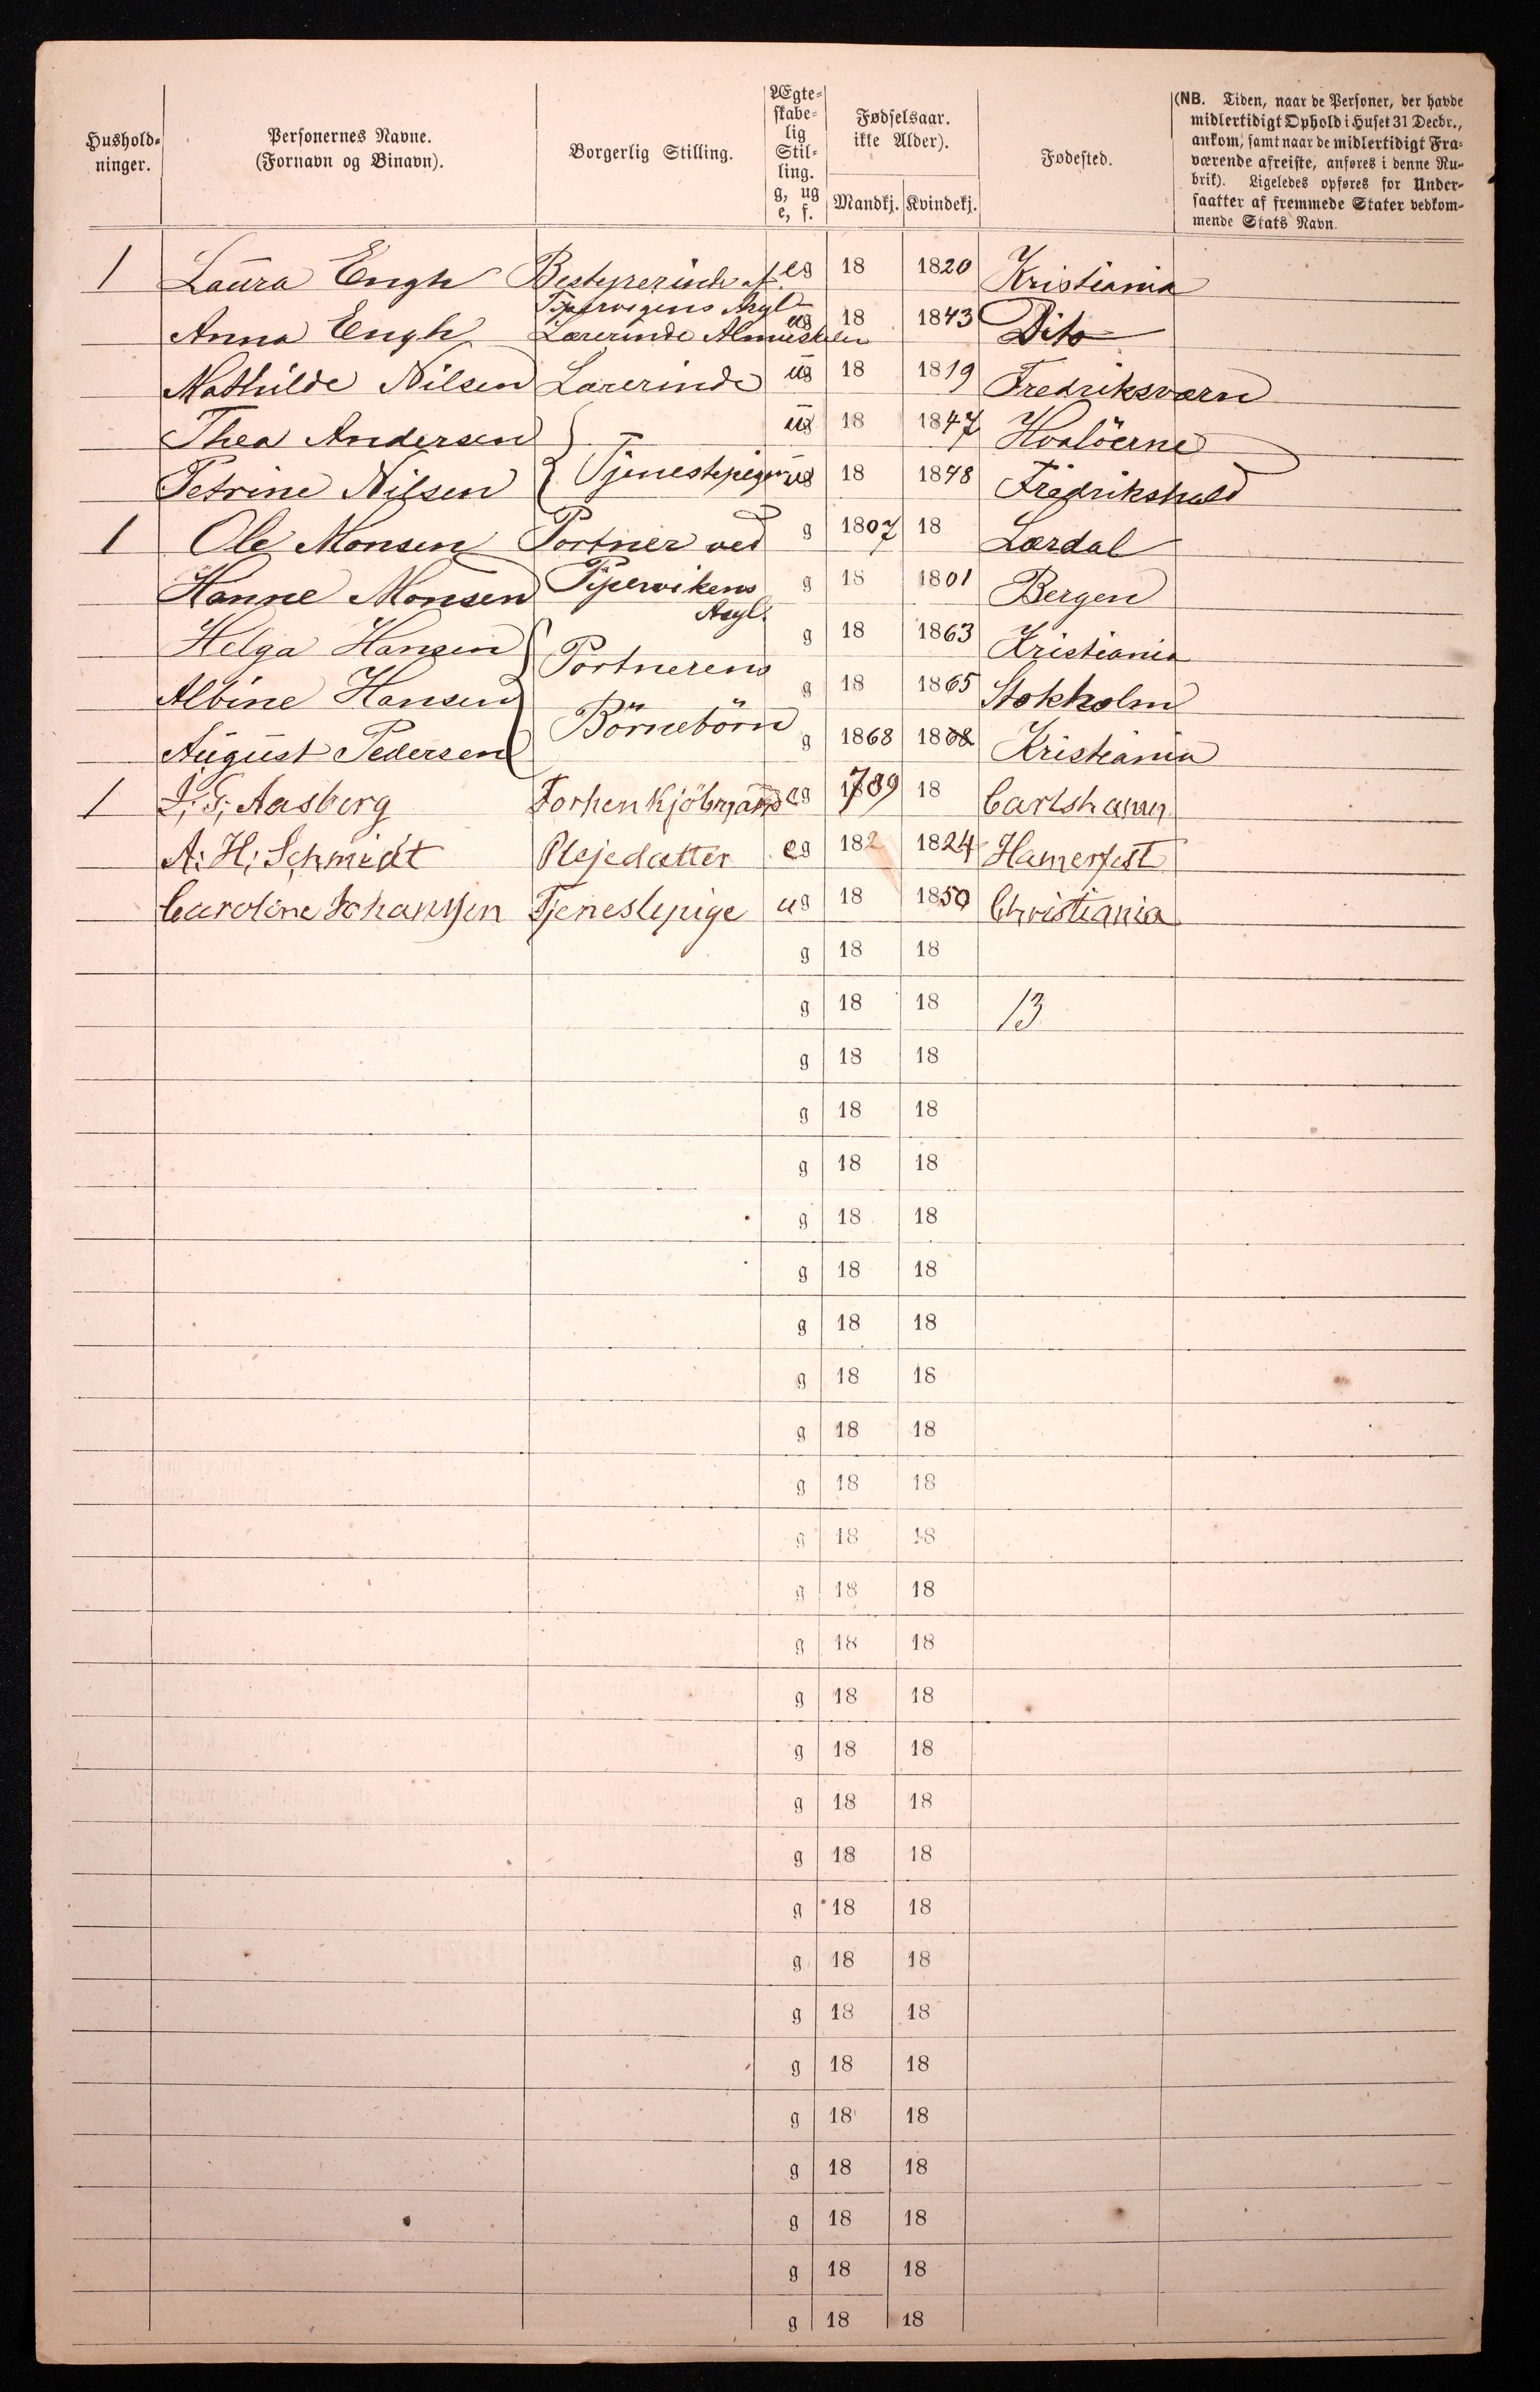 Hushold-
ninger.
Personernes Navne.
(Fornavn og Binavn).
Borgerlig Stilling.
Ægte-
skabe-
lig
Stil-
ling.
g, ug
e, f.
Fødselsaar.
ikke Alder).
Mandkj. Kvindekj.
Fødested.
(NB. Tiden, naar de Personer, der havde
midlertidigt Ophold i Huset 31 Decbr.,
ankom, samt naar de midlertidigt Fra-
værende afreiste, anføres i denne Ru-
brik). Ligeledes opføres for Under-
saatter af fremmede Stater vedkom-
mende Stats Navn.
1 Laura Engh Bestyrerinde af eg 18 1820 Kristiania
Pipervigens Asyl
Anna Engh Lærerinde Almueskolen ug 18 1843 Dito
Mathilde Nilsen Lærerinde ug 18 1819 Fredriksværn
Thea Andersen ug 18 1847 Hvalöerne
Petrine Nilsen Tjenestepiger ug 18 1848 Fredrikshald
1 Ole Monsen Portner ved g 1807 18 Lærdal
Hanne Monsen Pipervikens g 18 1801 Bergen
Asyl.
Helga Hansen Portnerens g 18 1863 Kristiania
Albine Hansen g 18 1865 Stokholm
August Pedersen Börnebörn g 1868 1868 Kristiania
1 J. G. Aasberg Forhen Kjöbmand eg 1789 18 Carlshamn
A. H. Schmidt Plejedatter eg 182 1824 Hamerfest
Caroline Johansen Tjenestepige ug 18 1850 Christiania
g 18 18
g 18 18 13
g 18 18
g 18 18
g 18 18
g 18 18
g 18 18
g 18 18
g 18 18
g 18 18
g 18 18
g 18 18
g 18 18
g 18 18
g 18 18
g 18 18
g 18 18
g 18 18
g 18 18
g 18 18
g 18 18
g 18 18
g 18 18
g 18 18
g 18 18
g 18 18
g 18 18